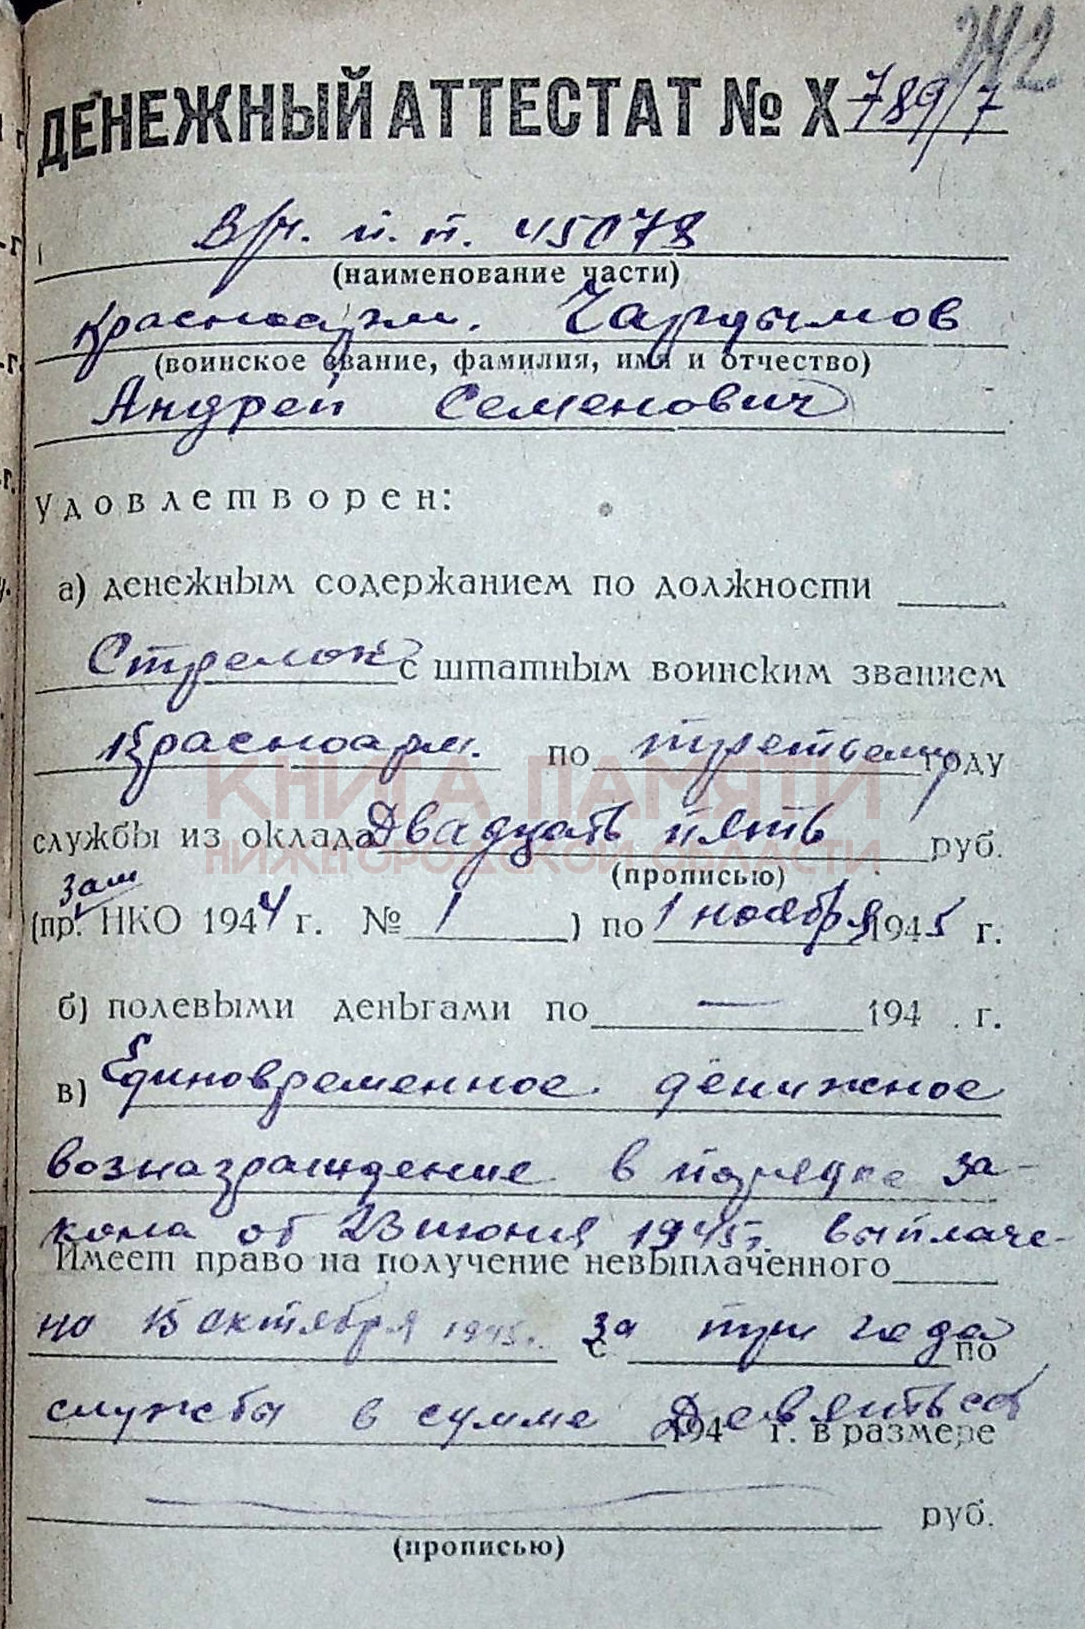 242
ДЕНЕЖНЫЙ АТТЕСТАТ № X 789/7
В/ч. п. п. 45078
(наименование части)
Красноарм. Чардымов
(воинское звание, фамилия, имя и отчество)
Андрей Семенович
Удовлетворен:
а) денежным содержанием по должности
Стрелок с штатным воинским званием
Красноарм. по третьему году
КНИГА ПАМЯТИ
службы из оклада Двадцать пять руб.
НИЖЕГОРОДСКОЙ ОБЛАСТИ
(прописью)
зам
(пр. НКО 1944 г. № 1 ) по 1 ноября 1945 г.
б) полевыми деньгами по — 194 . г.
в) Единовременное денижное
вознаграждение в порядке за-
кона от 23 июня 1945г. выплаче-
Имеет право на получение невыплаченного
но 15 октября 1945г. за три года
с по
службы в сумме Девятьсот
194 г. в размере
руб.
(прописью)